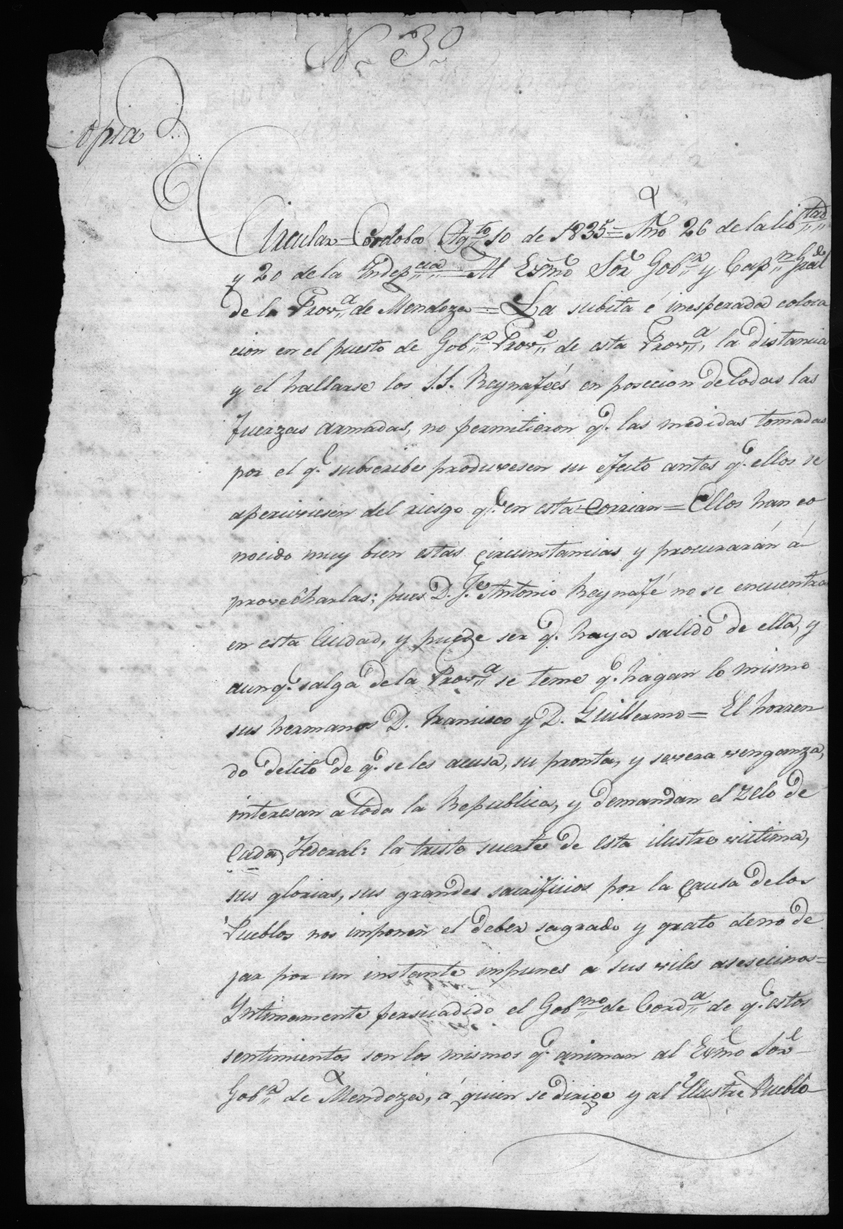 N. 3º
Copia
Circular = Cordoba Agto 10 de 1835 = Año 26 de la libtad
y 20 de la Indepcia = Al Exmo Sor Gobor y Capn Gral
de la Prova de Mendoza = La subita é inesperada coloca
cion en el puesto de Gobor Provo de esta Prova, la distancia
y el hallarse los SS. Reynafées en poseccion de todas las
fuerzas armadas, no permitieron q.e las medidas tomadas
por el q.e subscribe produxesen su efecto antes q.e ellos se
apercivicsen del riesgo q.e en esta corrian = Ellos han co
nocido muy bien estas circunstancias y procurarán á
provecharlas; pues D. Je Antonio Reynafé no se encuentra
en esta Ciudad, y puede ser q.e haya salido de ella, y
aunq.e salga de la Prova se teme q.e hagan lo mismo
sus hermanos D. Francisco y D. Guillermo = El horren
do delito de q.e se les acusa, su pronta, y severa venganza,
interesan a toda la Republica, y demandan el zelo de
cada Federal: la triste suerte de esta ilustre victima,
sus glorias, sus grandes sacrificios por la causa de los
Pueblos nos imponen el deber sagrado y grato de no de
jar por un instante impunes á sus viles asesecinos =
Intimamente persuadido el Gobno de Corda de q.e estos
sentimientos son los mismos q.e animan al Exmo Sor
Gobor de Mendoza, á quien se dirige y al Ilustre Pueblo